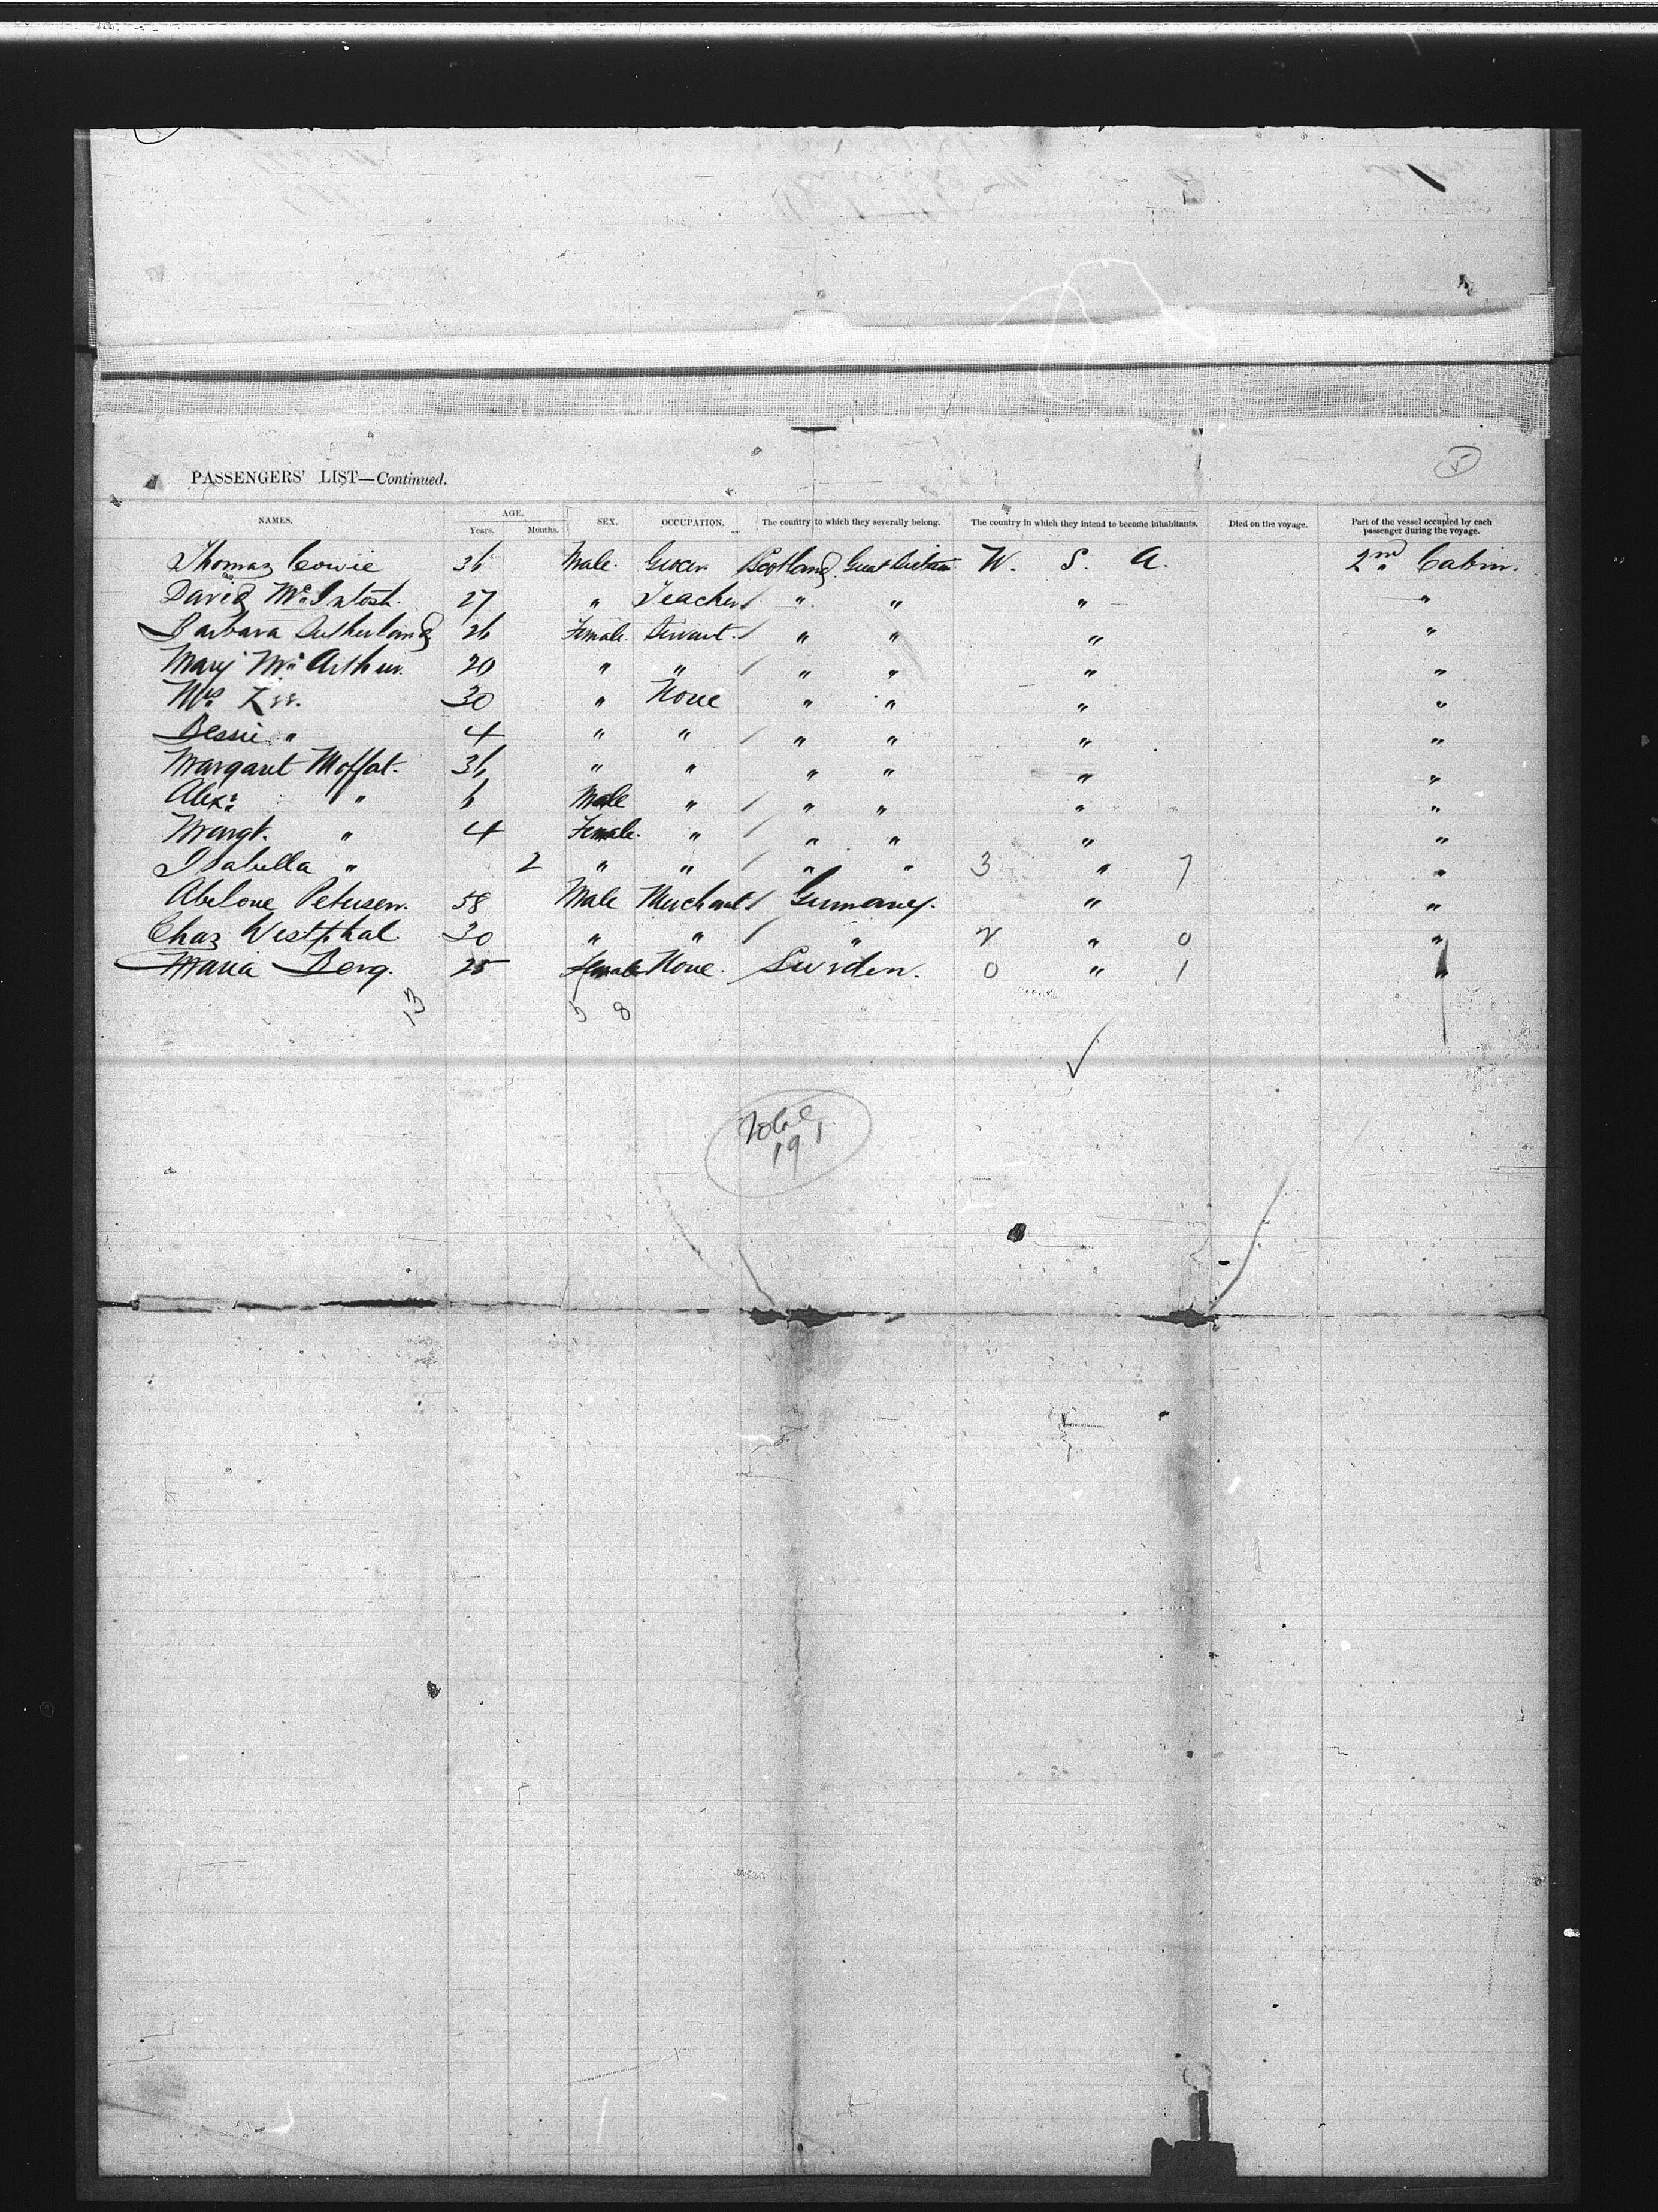 PASSENGERS' LIST—Continued.
NAMES. AGE. SEX. OCCUPATION. The country to which they severally belong. The country in which they intend to become inhabitants. Died on the voyage. Part of the vessel occupied by each passenger during the voyage.
Years. Months.
Thomas Cowie 36 Male. Grocer Scotland Great Britain U. S. A. 2nd Cabin.
David McIntosh. 27 " Teacher " " " "
Barbara Sutherland 26 Female. Servant. " " " "
Mary McArthur. 20 " " " " " "
Mrs 30 " None " " " "
Bessie " 4 " " " " " "
Margaret Moffat. 36 " " " " " "
Alexr " 6 Male " " " " "
Margt. " 4 Female. " " " " "
Isabella " 2 " " " " 3 " 7 "
Abelone Petersen. 58 Male Merchant Germany. " "
Chas Westphal. 30 " " " 2 " 0 "
Maria Berg. 25 Female None. Sweden. 0 " 1 "
13 5 8
Total
191